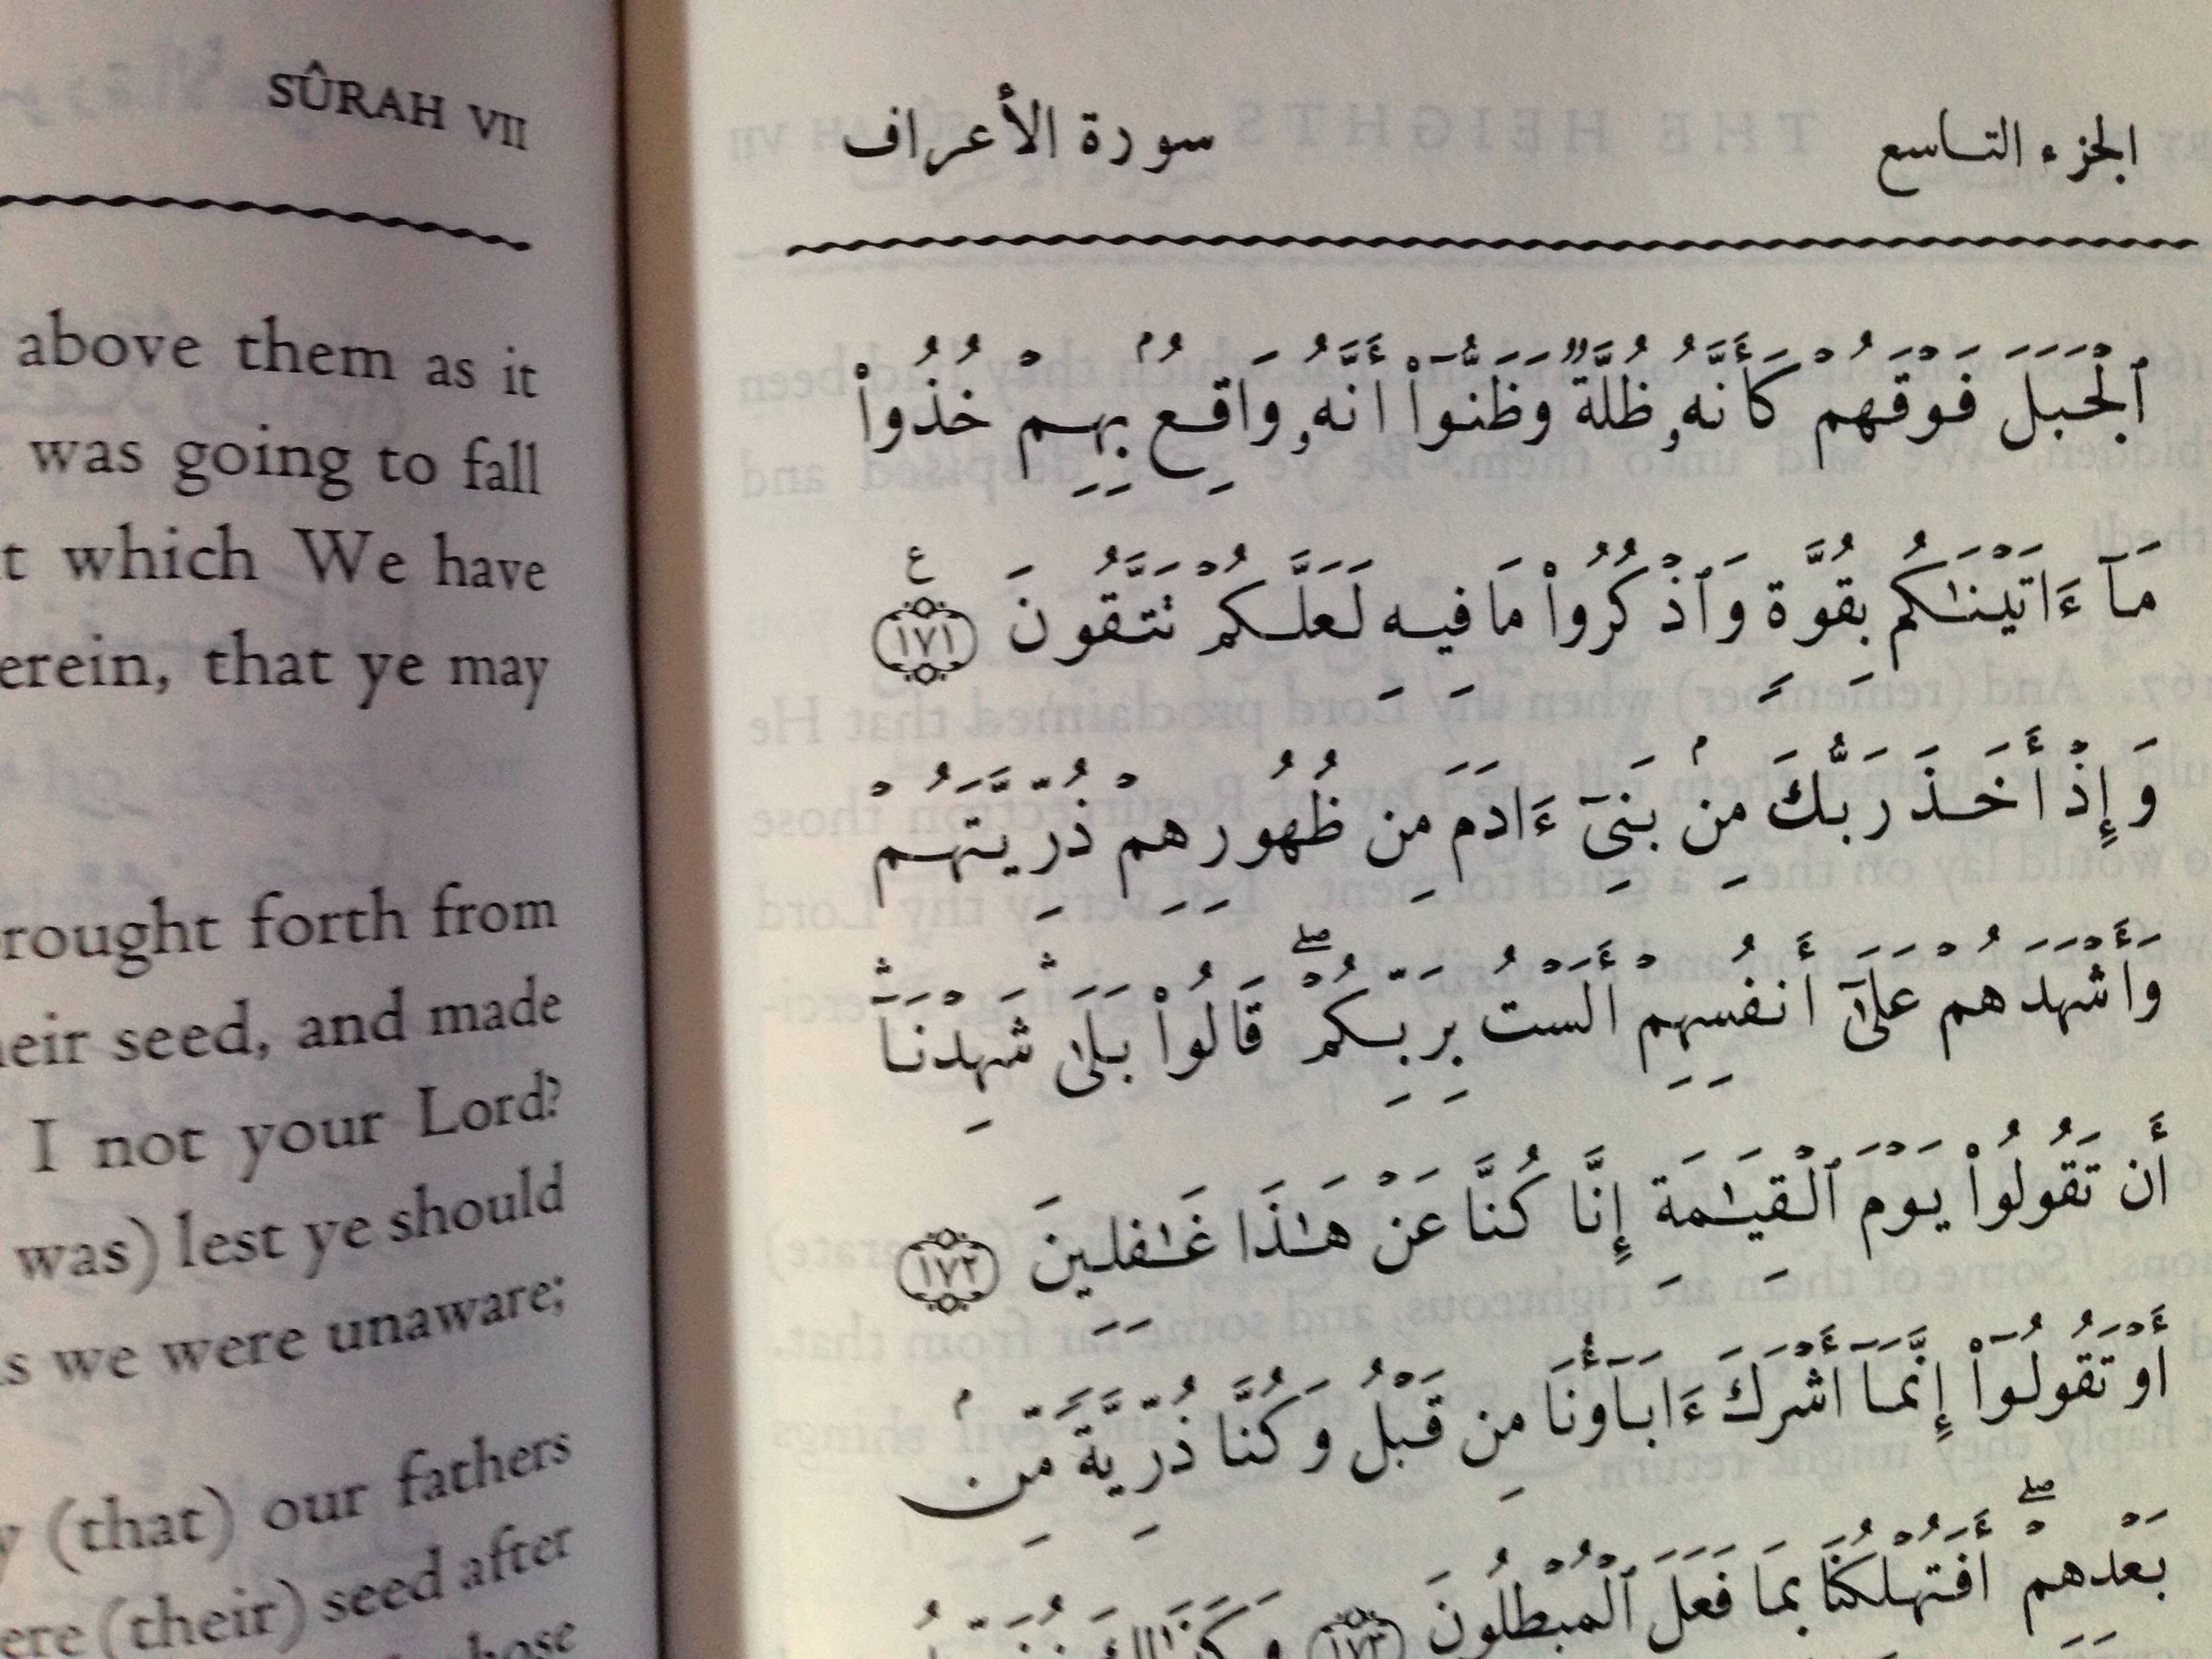 SÛRAH VII
above them as it
was going to fall
which We have
that ye may
forth from
seed, and made
I not your Lord?
was) lest ye should
we were unaware;
(that) our fathers
(their) seed after
الجزء التاسع
سورة الأعراف
ٱلْجَبَلَ فَوْقَهُمْ كَأَنَّهُۥ ظُلَّةٌ وَظَنُّوٓا۟ أَنَّهُۥ وَاقِعٌۢ بِهِمْ خُذُوا۟
مَآ ءَاتَيْنَٰكُم بِقُوَّةٍ وَٱذْكُرُوا۟ مَا فِيهِ لَعَلَّكُمْ تَتَّقُونَ ع ١٧١
وَإِذْ أَخَذَ رَبُّكَ مِنۢ بَنِىٓ ءَادَمَ مِن ظُهُورِهِمْ ذُرِّيَّتَهُمْ
وَأَشْهَدَهُمْ عَلَىٰٓ أَنفُسِهِمْ أَلَسْتُ بِرَبِّكُمْ ۖ قَالُوا۟ بَلَىٰ ۛ شَهِدْنَآ ۛ
أَن تَقُولُوا۟ يَوْمَ ٱلْقِيَٰمَةِ إِنَّا كُنَّا عَنْ هَٰذَا غَٰفِلِينَ ١٧٢
أَوْ تَقُولُوٓا۟ إِنَّمَآ أَشْرَكَ ءَابَآؤُنَا مِن قَبْلُ وَكُنَّا ذُرِّيَّةً مِّنۢ
بَعْدِهِمْ ۖ أَفَتُهْلِكُنَا بِمَا فَعَلَ ٱلْمُبْطِلُونَ ١٧٣ وَكَذَٰلِكَ